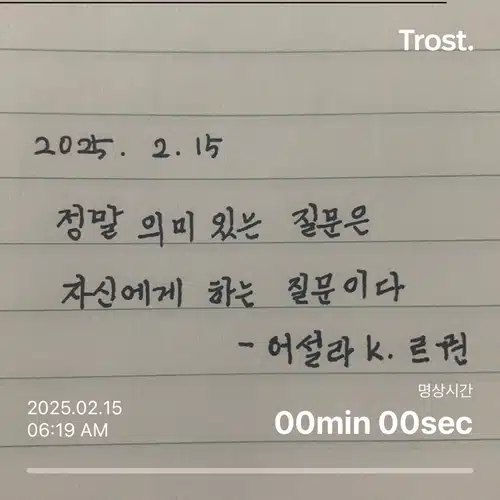 Trost.
2025. 2. 15
정말 의미 있는 질문은
자신에게 하는 질문이다
- 어설라 K. 르귄
명상시간
2025.02.15
00min 00sec
06:19 AM